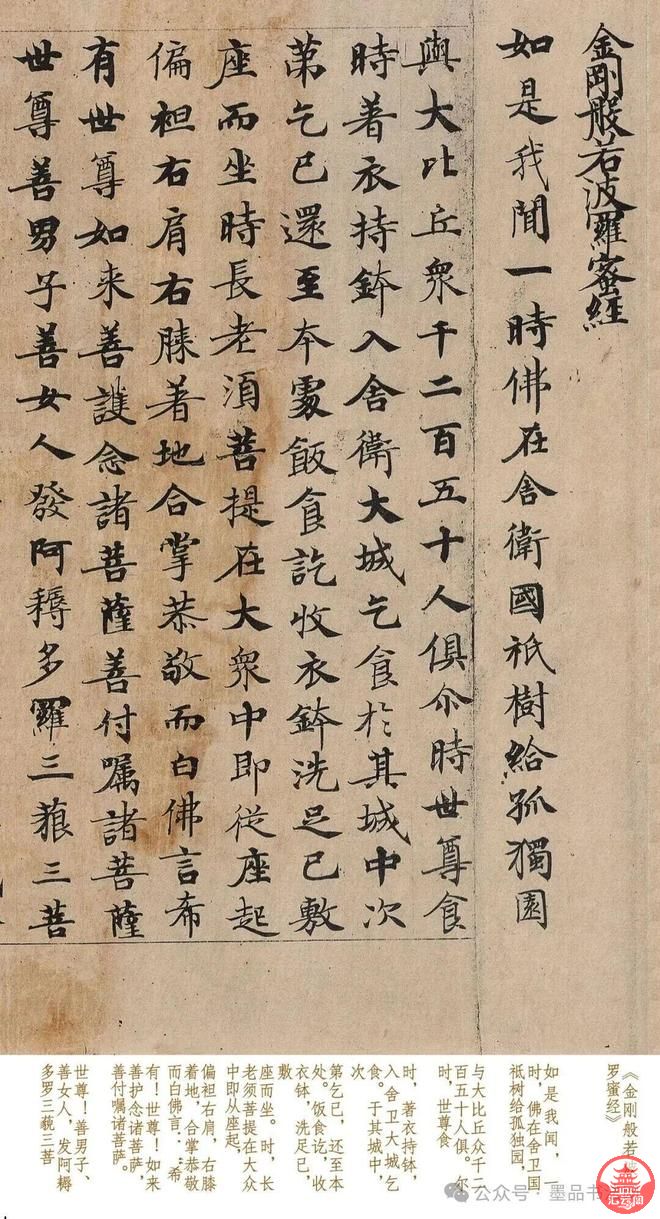 金剛般若波羅蜜經
如是我聞一時佛在舍衛國祇樹給孤獨園
與大比丘衆千二百五十人俱尒時世尊食
時着衣持鉢入舍衛大城乞食於其城中次
第乞已還至本處飯食訖收衣鉢洗足已敷
座而坐時長老須菩提在大衆中即從座起
偏袒右肩右膝著地合掌恭敬而白佛言希
有世尊如来善護念諸菩薩善付囑諸菩薩
世尊善男子善女人發阿耨多羅三藐三菩
《金刚般若波
罗蜜经》
如是我闻，一
时，佛在舍卫国
祇树给孤独园，
与大比丘众千二
百五十人俱。尔
时，世尊食
时，著衣持钵，
入舍卫大城乞
食。于其城中，
次
第乞已，还至本
处。饭食讫，收
衣钵，洗足已，
敷
座而坐。时，长
老须菩提在大众
中即从座起，
偏袒右肩，右膝
着地，合掌恭敬
而白佛言：“希
有！世尊！如来
善护念诸菩萨，
善付嘱诸菩萨。
世尊！善男子、
善女人，发阿耨
多罗三藐三菩
公众号·墨品书
汇云阁